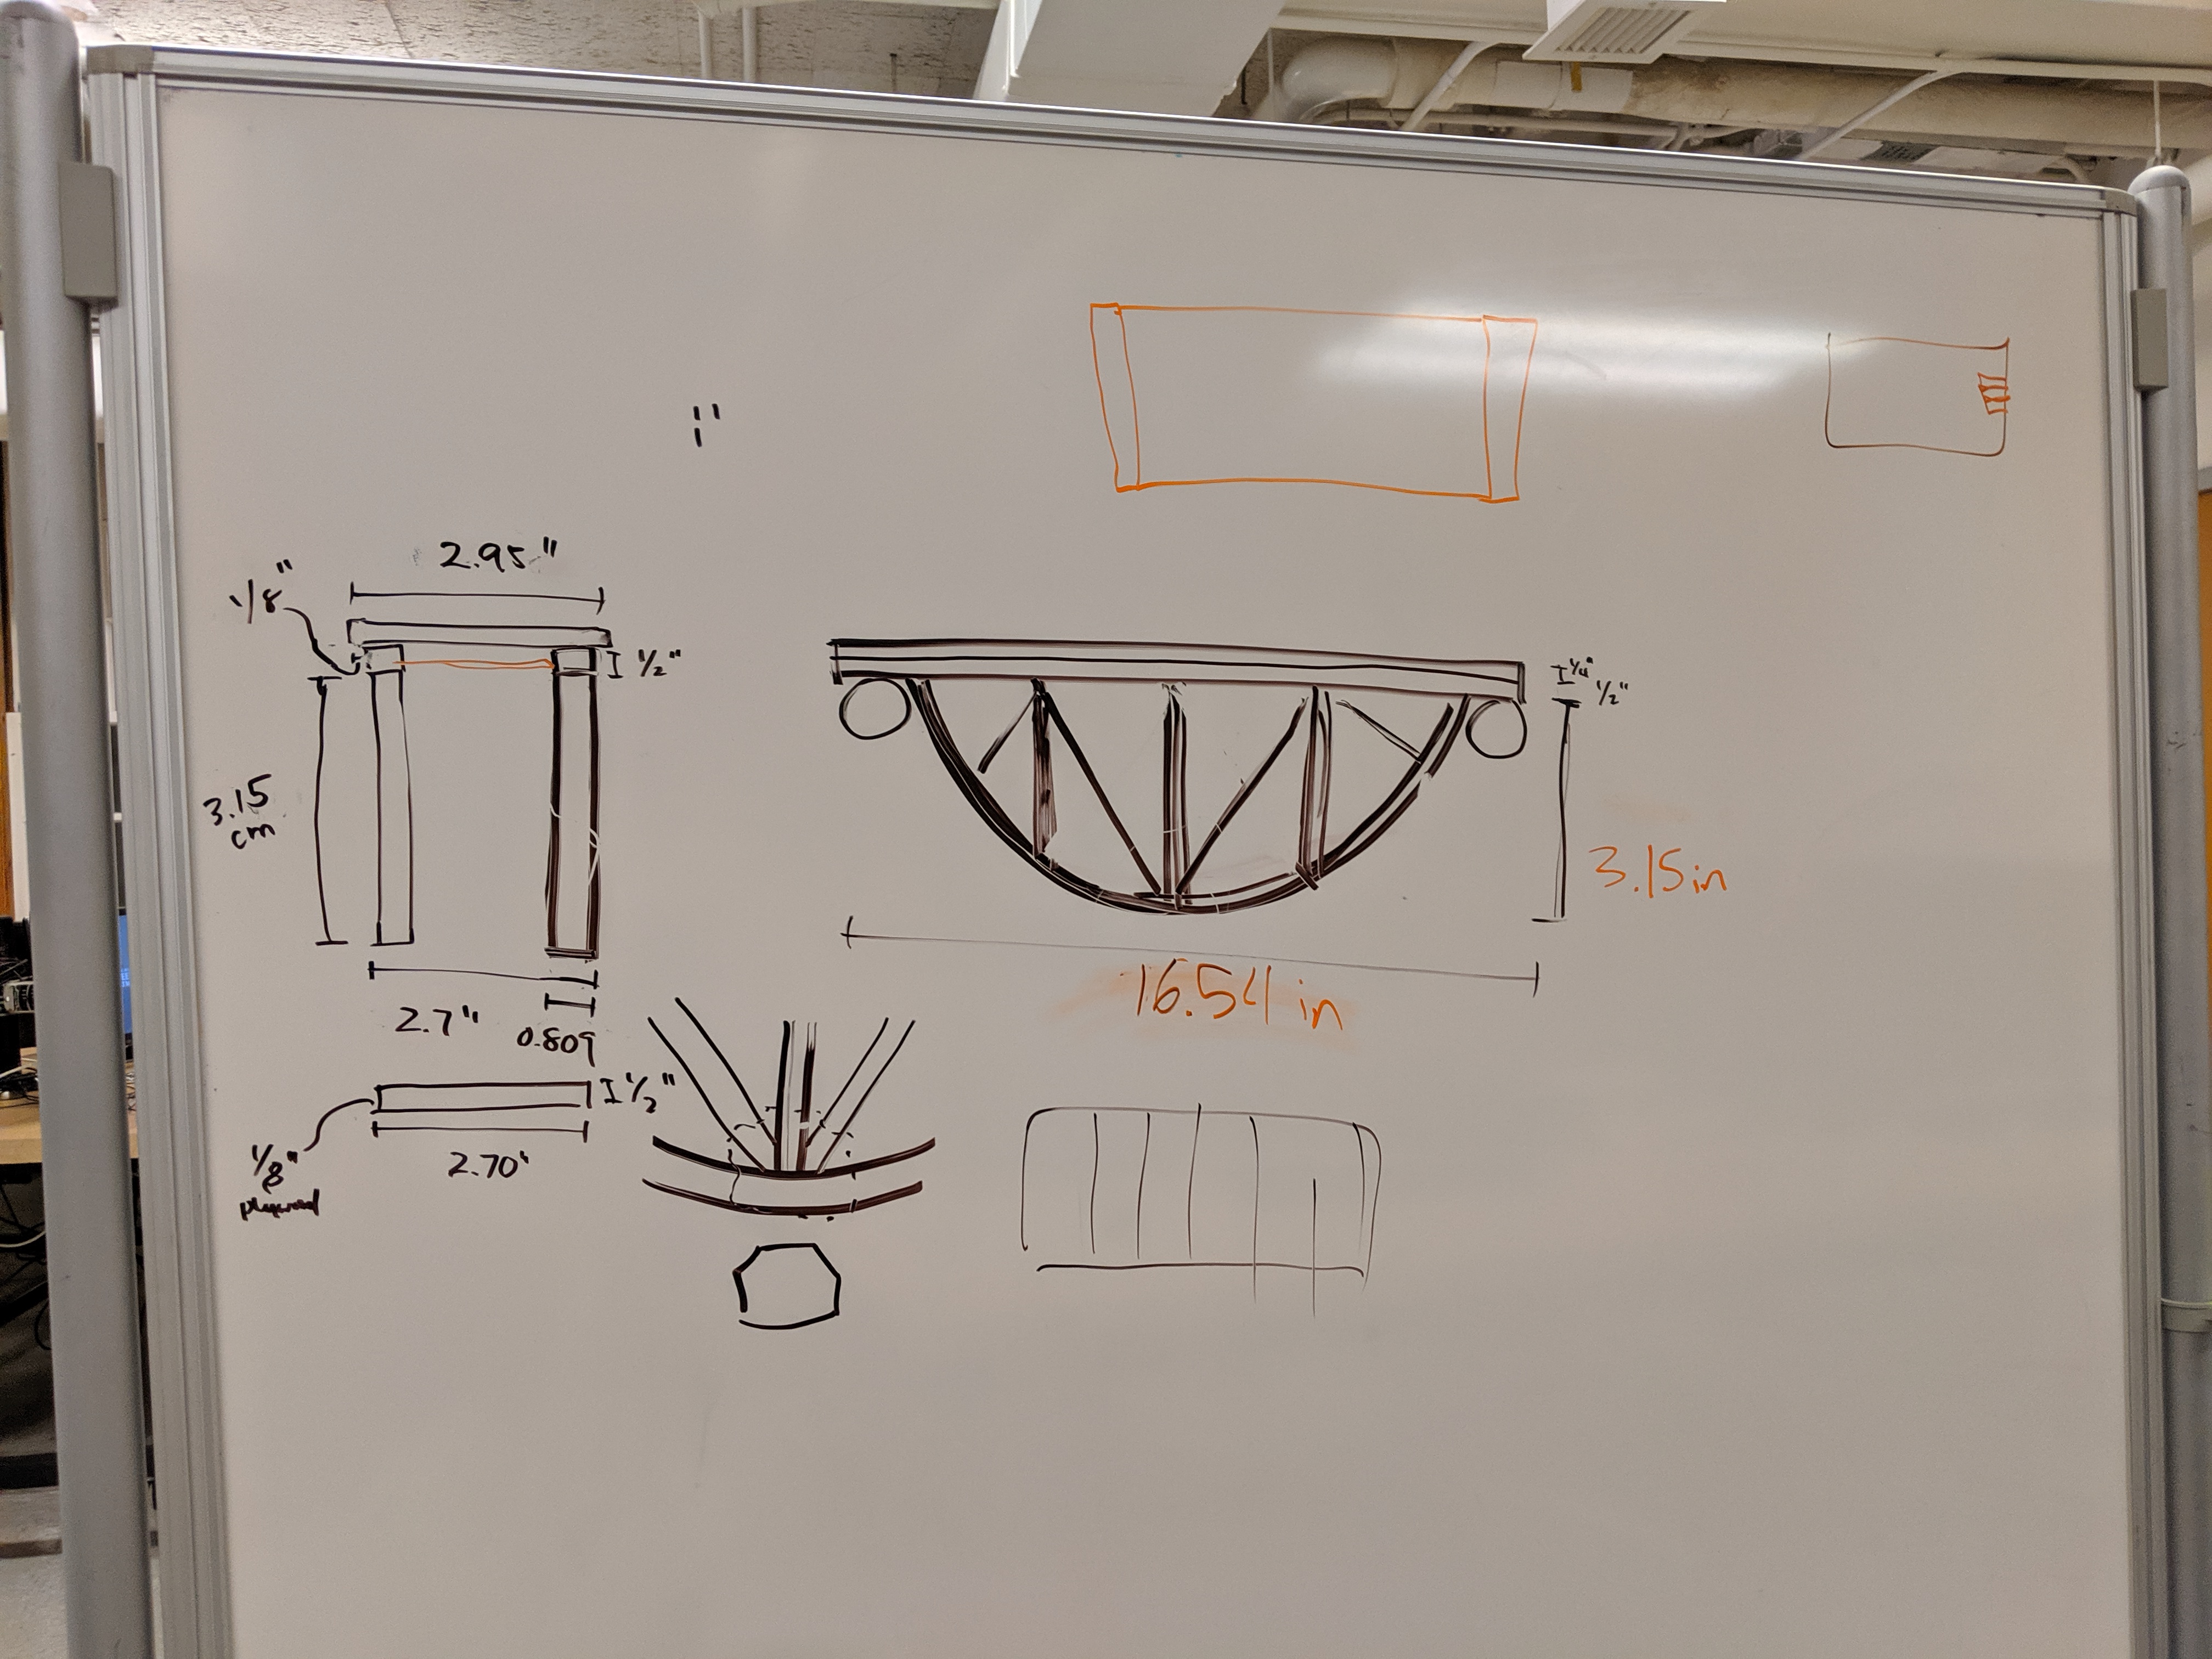 2.95"
1/8"
1/2"
3.15
cm
2.7"
0.809
1/2"
2.70"
1/8"
plywood
1/4"
1/2"
3.15in
16.54 in